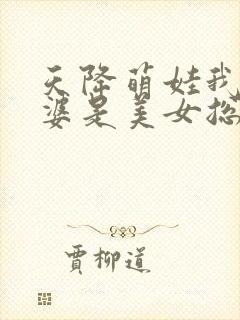 天降萌娃我
婆是美女总
賈柳道